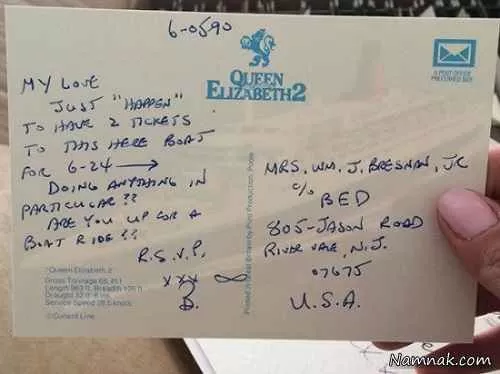 6-0590
QUEEN
ELIZABETH 2
A POST OFFICE
PREFERRED SIZE
MY LOVE
JUST "HAPPEN"
TO HAVE 2 TICKETS
TO THIS HERE BOAT
FOR 6-24 →
DOING ANYTHING IN
PARTICULAR??
ARE YOU UP FOR A
BOAT RIDE??
R.S.V.P.
xxx ∞
B.
MRS. WM. J. BRESNAN, JR
c/o
BED
805-JASON ROAD
RIVER VALE, N.J.
07675
U.S.A.
"Queen Elizabeth 2"
Gross Tonnage
Length 963 ft. Breadth 105 ft.
Draught 32 ft.
Service Speed 28½ knots
©Cunard Line
Printed in Great Britain by
Production,
Namnak.com